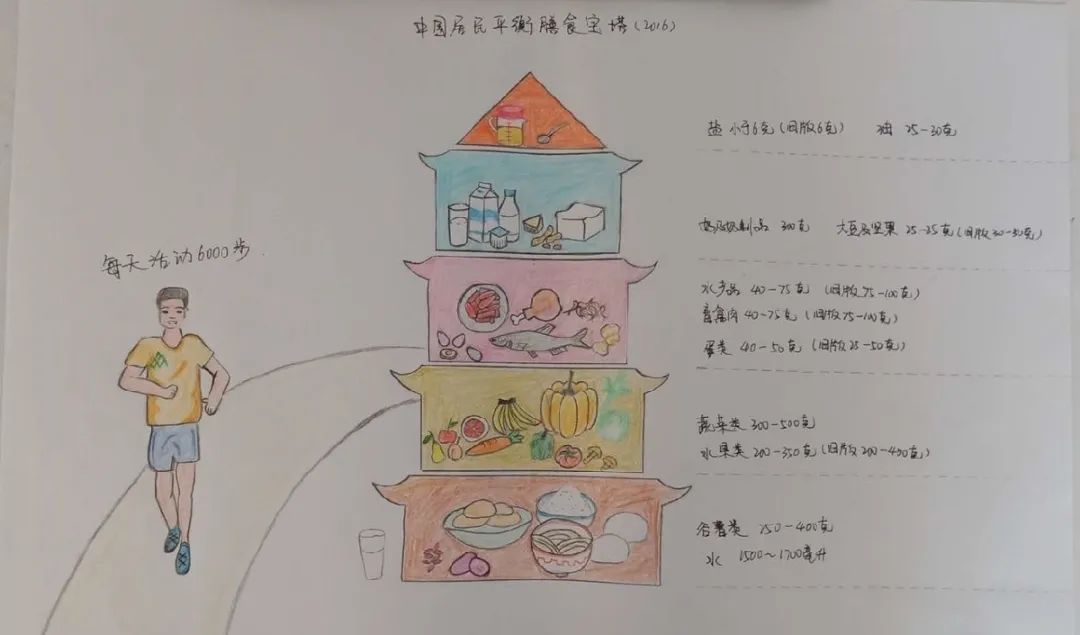 中国居民平衡膳食宝塔(2016)
盐 小于6克(旧版6克) 油 25-30克
奶及奶制品 300克 大豆及坚果 25-35克(旧版30-50克)
每天活动6000步
水产品 40-75克 (旧版75-100克)
畜禽肉 40-75克 (旧版75-100克)
蛋类 40-50克 (旧版25-50克)
蔬菜类 300-500克
水果类 200-350克(旧版200-400克)
谷薯类 250-400克
水 1500~1700毫升